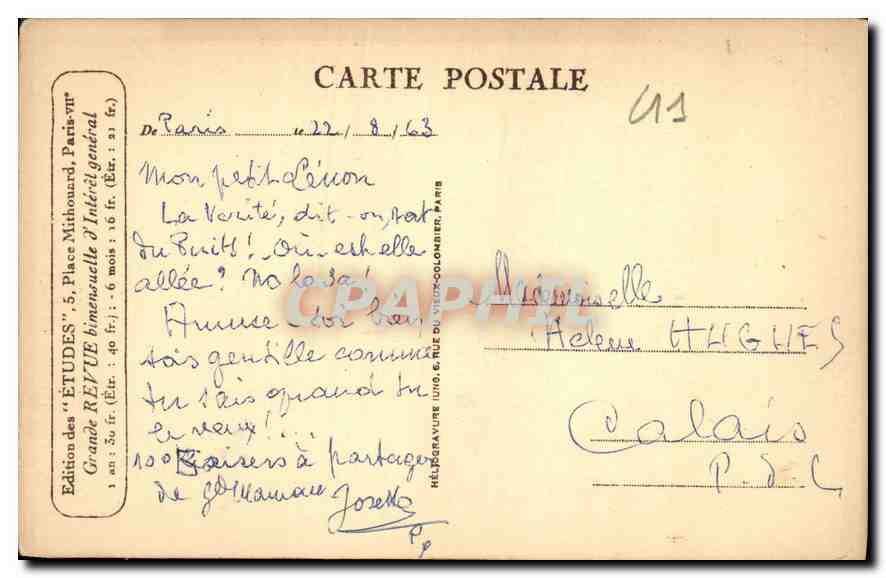 CARTE POSTALE
411
De Paris le 22/8/63
Mon petit
La Vérité, dit-on, sort
du Puits! Où est elle
allée?
Amuse-toi bien
sois gentille comme
tu sais quand tu
le veux!...
100 Baisers à partager
de Gd Maman Josette
Mademoiselle
Helene HUGUES
Calais
P.d.C
Edition des "ÉTUDES", 5, Place Mithouard, Paris-VIIe
Grande REVUE bimensuelle d'Intérêt général
1 an : 30 fr. (Étr. : 40 fr.) : - 6 mois : 16 fr. (Étr. : 21 fr.)
HÉLIOGRAVURE IUNG, 6, RUE DU VIEUX-COLOMBIER, PARIS
CPAPHIL